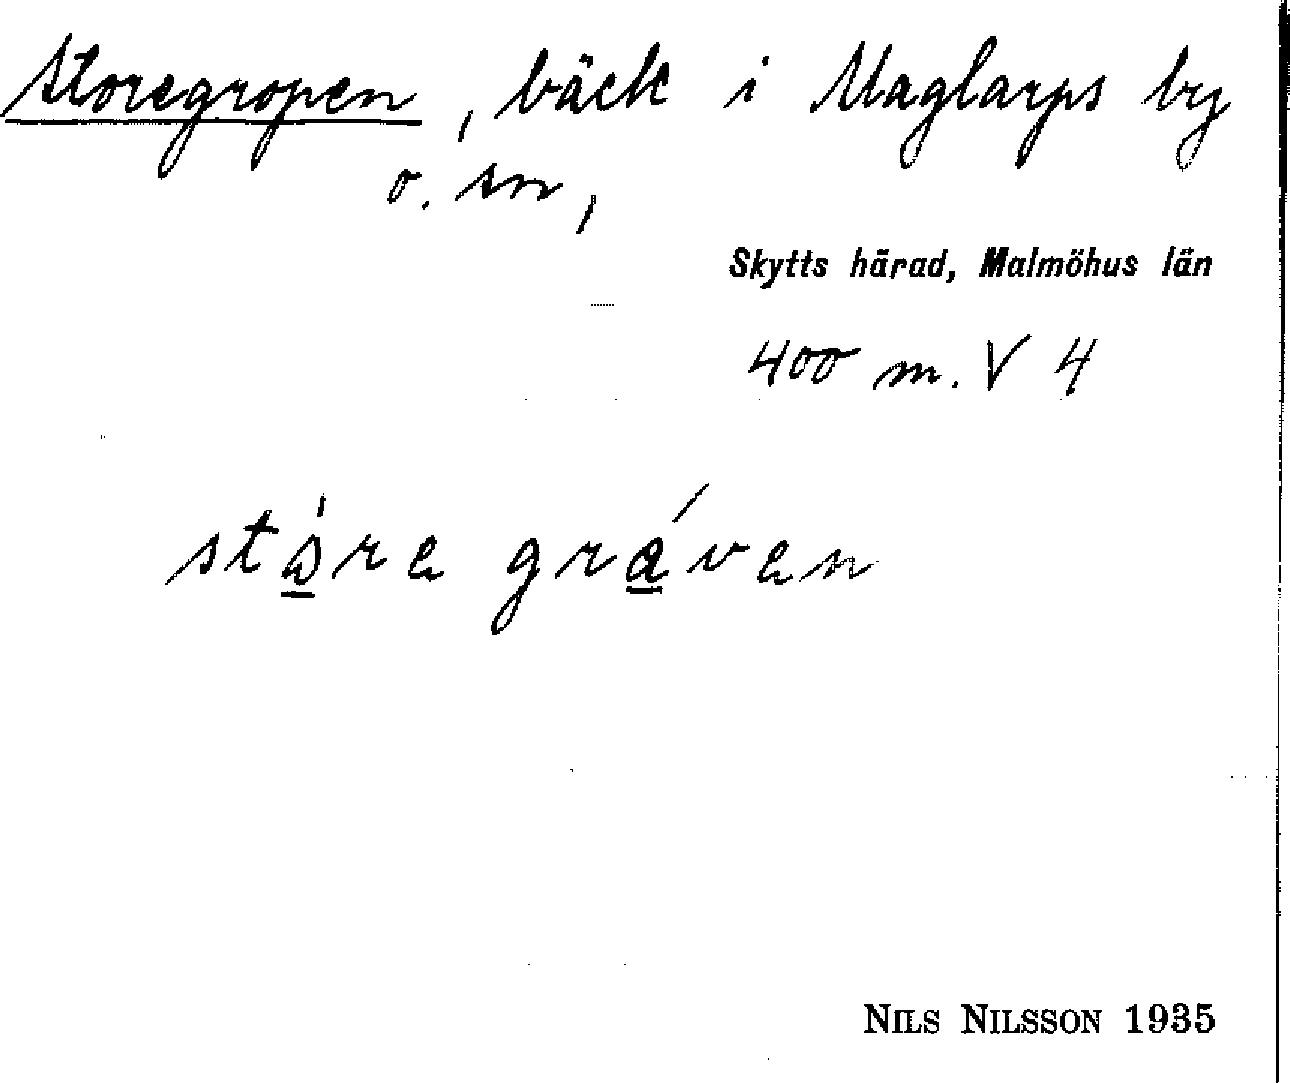 Storegropen, bäck i Maglarps by
o. sn,
Skytts härad, Malmöhus län
400 m. V 4
stóre gráven
NILS NILSSON 1935